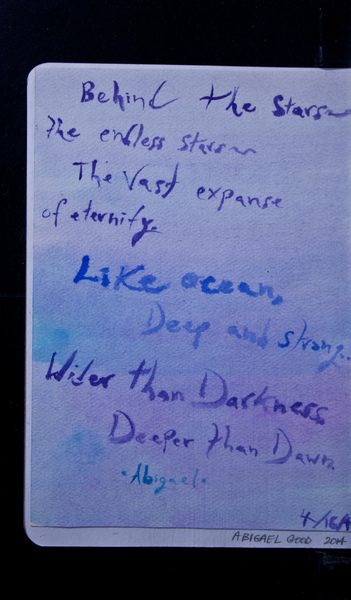 Behind the stars~
The endless stars~
The Vast expanse
of eternity.
Like ocean,
Deep and strong..
Wider than Darkness,
Deeper than Dawn.
·Abigael·
4/16/14
ABIGAEL GOOD 2014